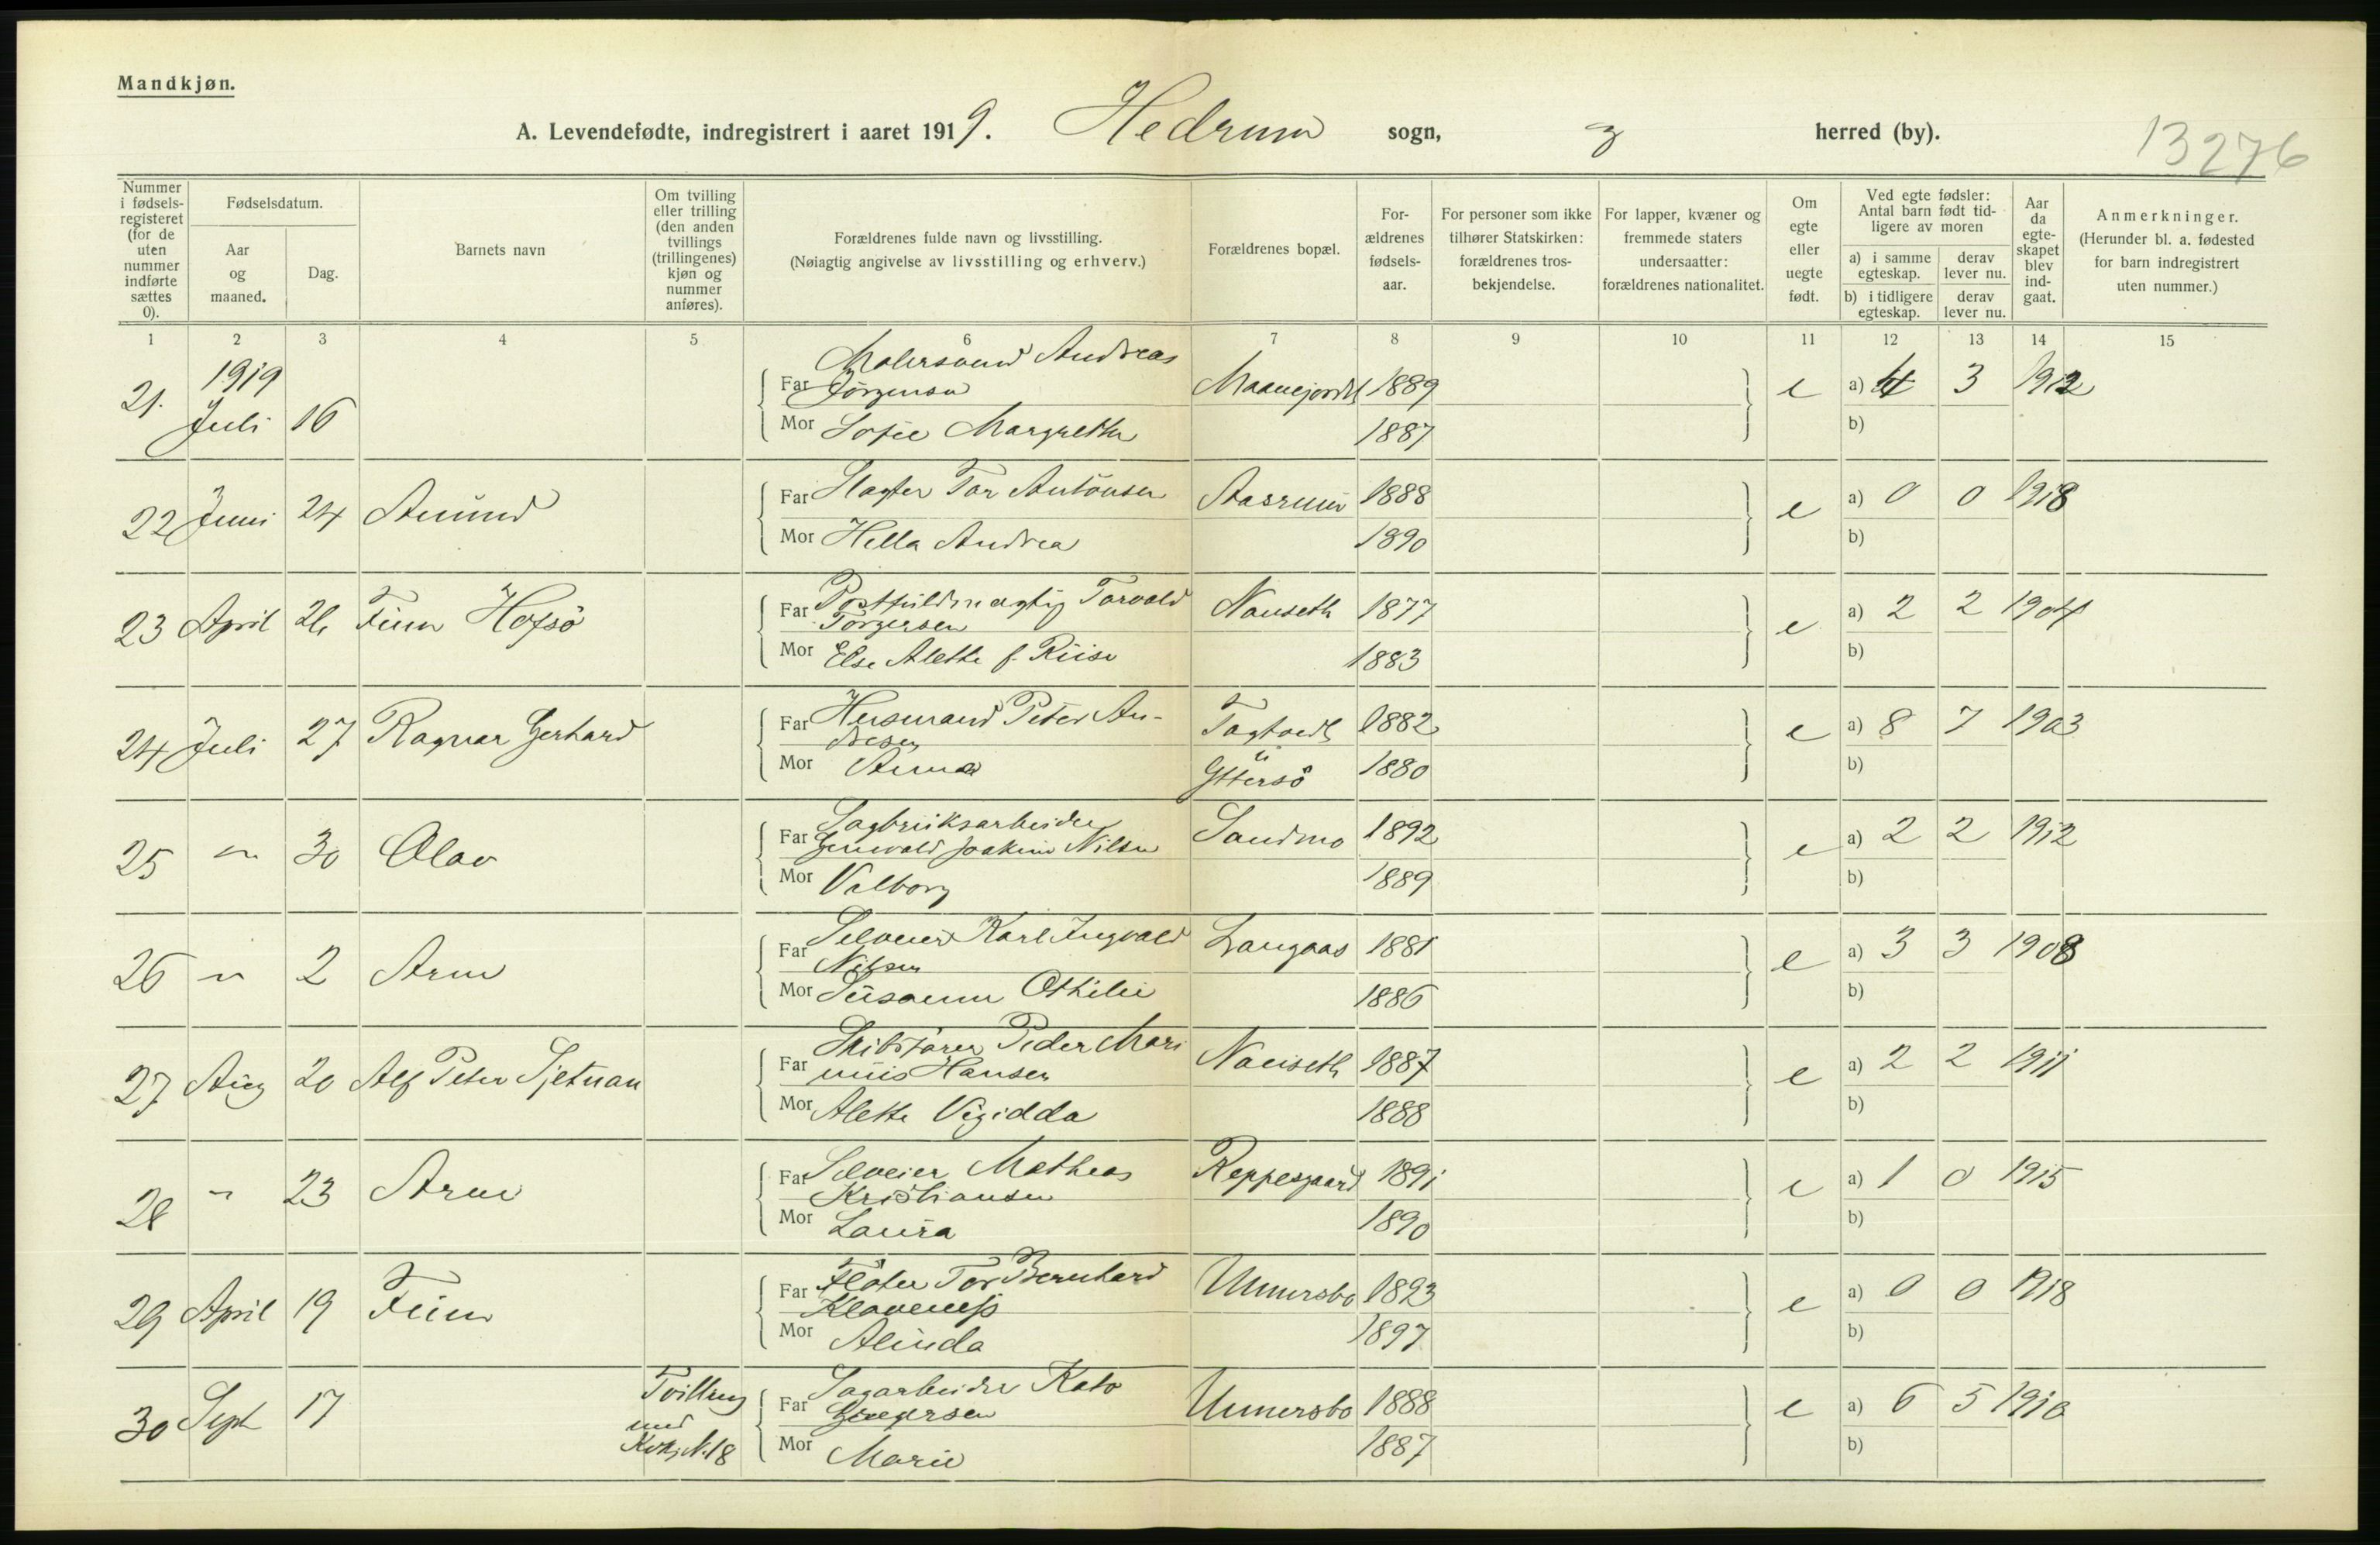 Mandkjøn.
A. Levendefødte, indregistrert i aaret 1919. Hedrum sogn, herred (by).
13276
Nummer i fødsels-registeret (for de uten nummer indførte sættes 0).
Fødselsdatum.
Aar og maaned.
Dag.
Barnets navn
Om tvilling eller trilling (den anden tvillings (trillingenes) kjøn og nummer anføres).
Forældrenes fulde navn og livsstilling.
(Nøiagtig angivelse av livsstilling og erhverv.)
Forældrenes bopæl.
For-ældrenes fødsels-aar.
For personer som ikke tilhører Statskirken: forældrenes tros-bekjendelse.
For lapper, kvæner og fremmede staters undersaatter: forældrenes nationalitet.
Om egte eller uegte født.
Ved egte fødsler: Antal barn født tid-ligere av moren
a) i samme egteskap.
derav lever nu.
b) i tidligere egteskap.
derav lever nu.
Aar da egte-skapet blev ind-gaat.
Anmerkninger.
(Herunder bl. a. fødested for barn indregistrert uten nummer.)
1 2 3 4 5 6 7 8 9 10 11 12 13 14 15
1919
21. Juli 16 Far Andreas Jörgensen 1889 e a) 4 3 1912
Mor Sofie Margrethe 1887 b)
22 Juni 24 Amund Far Tor Antonsen Aasrum 1888 e a) 0 0 1918
Mor Hella Andrea 1890 b)
23 April 26 Finn Hofsö Far Postfuldmægtig Torvald Torgersen Nanseth 1877 e a) 2 2 1904
Mor Else Alette f. Riise 1883 b)
24 Juli 27 Ragnar Gerhard Far Husmand Peter Andresen Tagtvedt 1882 e a) 8 7 1903
Mor Anna Yttersö 1880 b)
25 " 30 Olav Far Sagbruksarbeider Joakim Nilsen Sandmo 1892 e a) 2 2 1912
Mor Valborg 1889 b)
26 " 2 Arne Far Selveier Karl Ingvald Nilsen Langaas 1881 e a) 3 3 1908
Mor Susanne Othilie 1886 b)
27 Aug 20 Alf Peter Far Skibsfører Peder Marinius Hansen Nanseth 1887 e a) 2 2 1911
Mor Alette 1888 b)
28 " 23 Arne Far Selveier Mathias Kristiansen Reppesgaard 1891 e a) 1 0 1915
Mor Laura 1890 b)
29 April 19 Finn Far Fløter Tor Bernhard Klaveness Unnersbo 1893 e a) 0 0 1918
Mor Alinda 1897 b)
30 Sept 17 Tvilling med Kvkj. N. 18 Far Sagarbeider Kato Unnersbo 1888 e a) 6 5 1910
Mor Marie 1887 b)